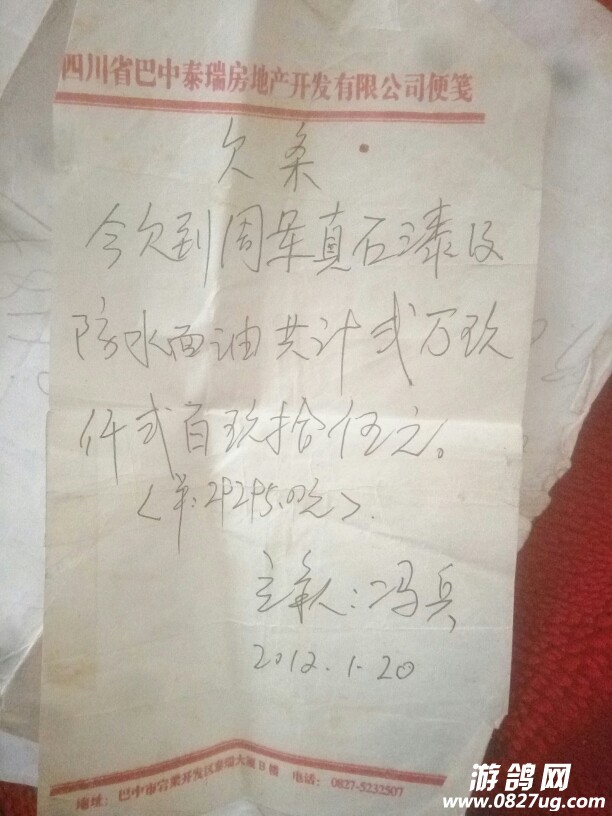 四川省巴中泰瑞房地产开发有限公司便笺
欠条
今欠到周杲真石漆及
防水面油共计弍万玖
仟弍百玖拾伍元。
29295.00元
冯兵
2012.1.20
地址：巴中市宕梁开发区泰瑞大厦B楼 电话：0827-5232507
游鸽网
www.0827ug.com